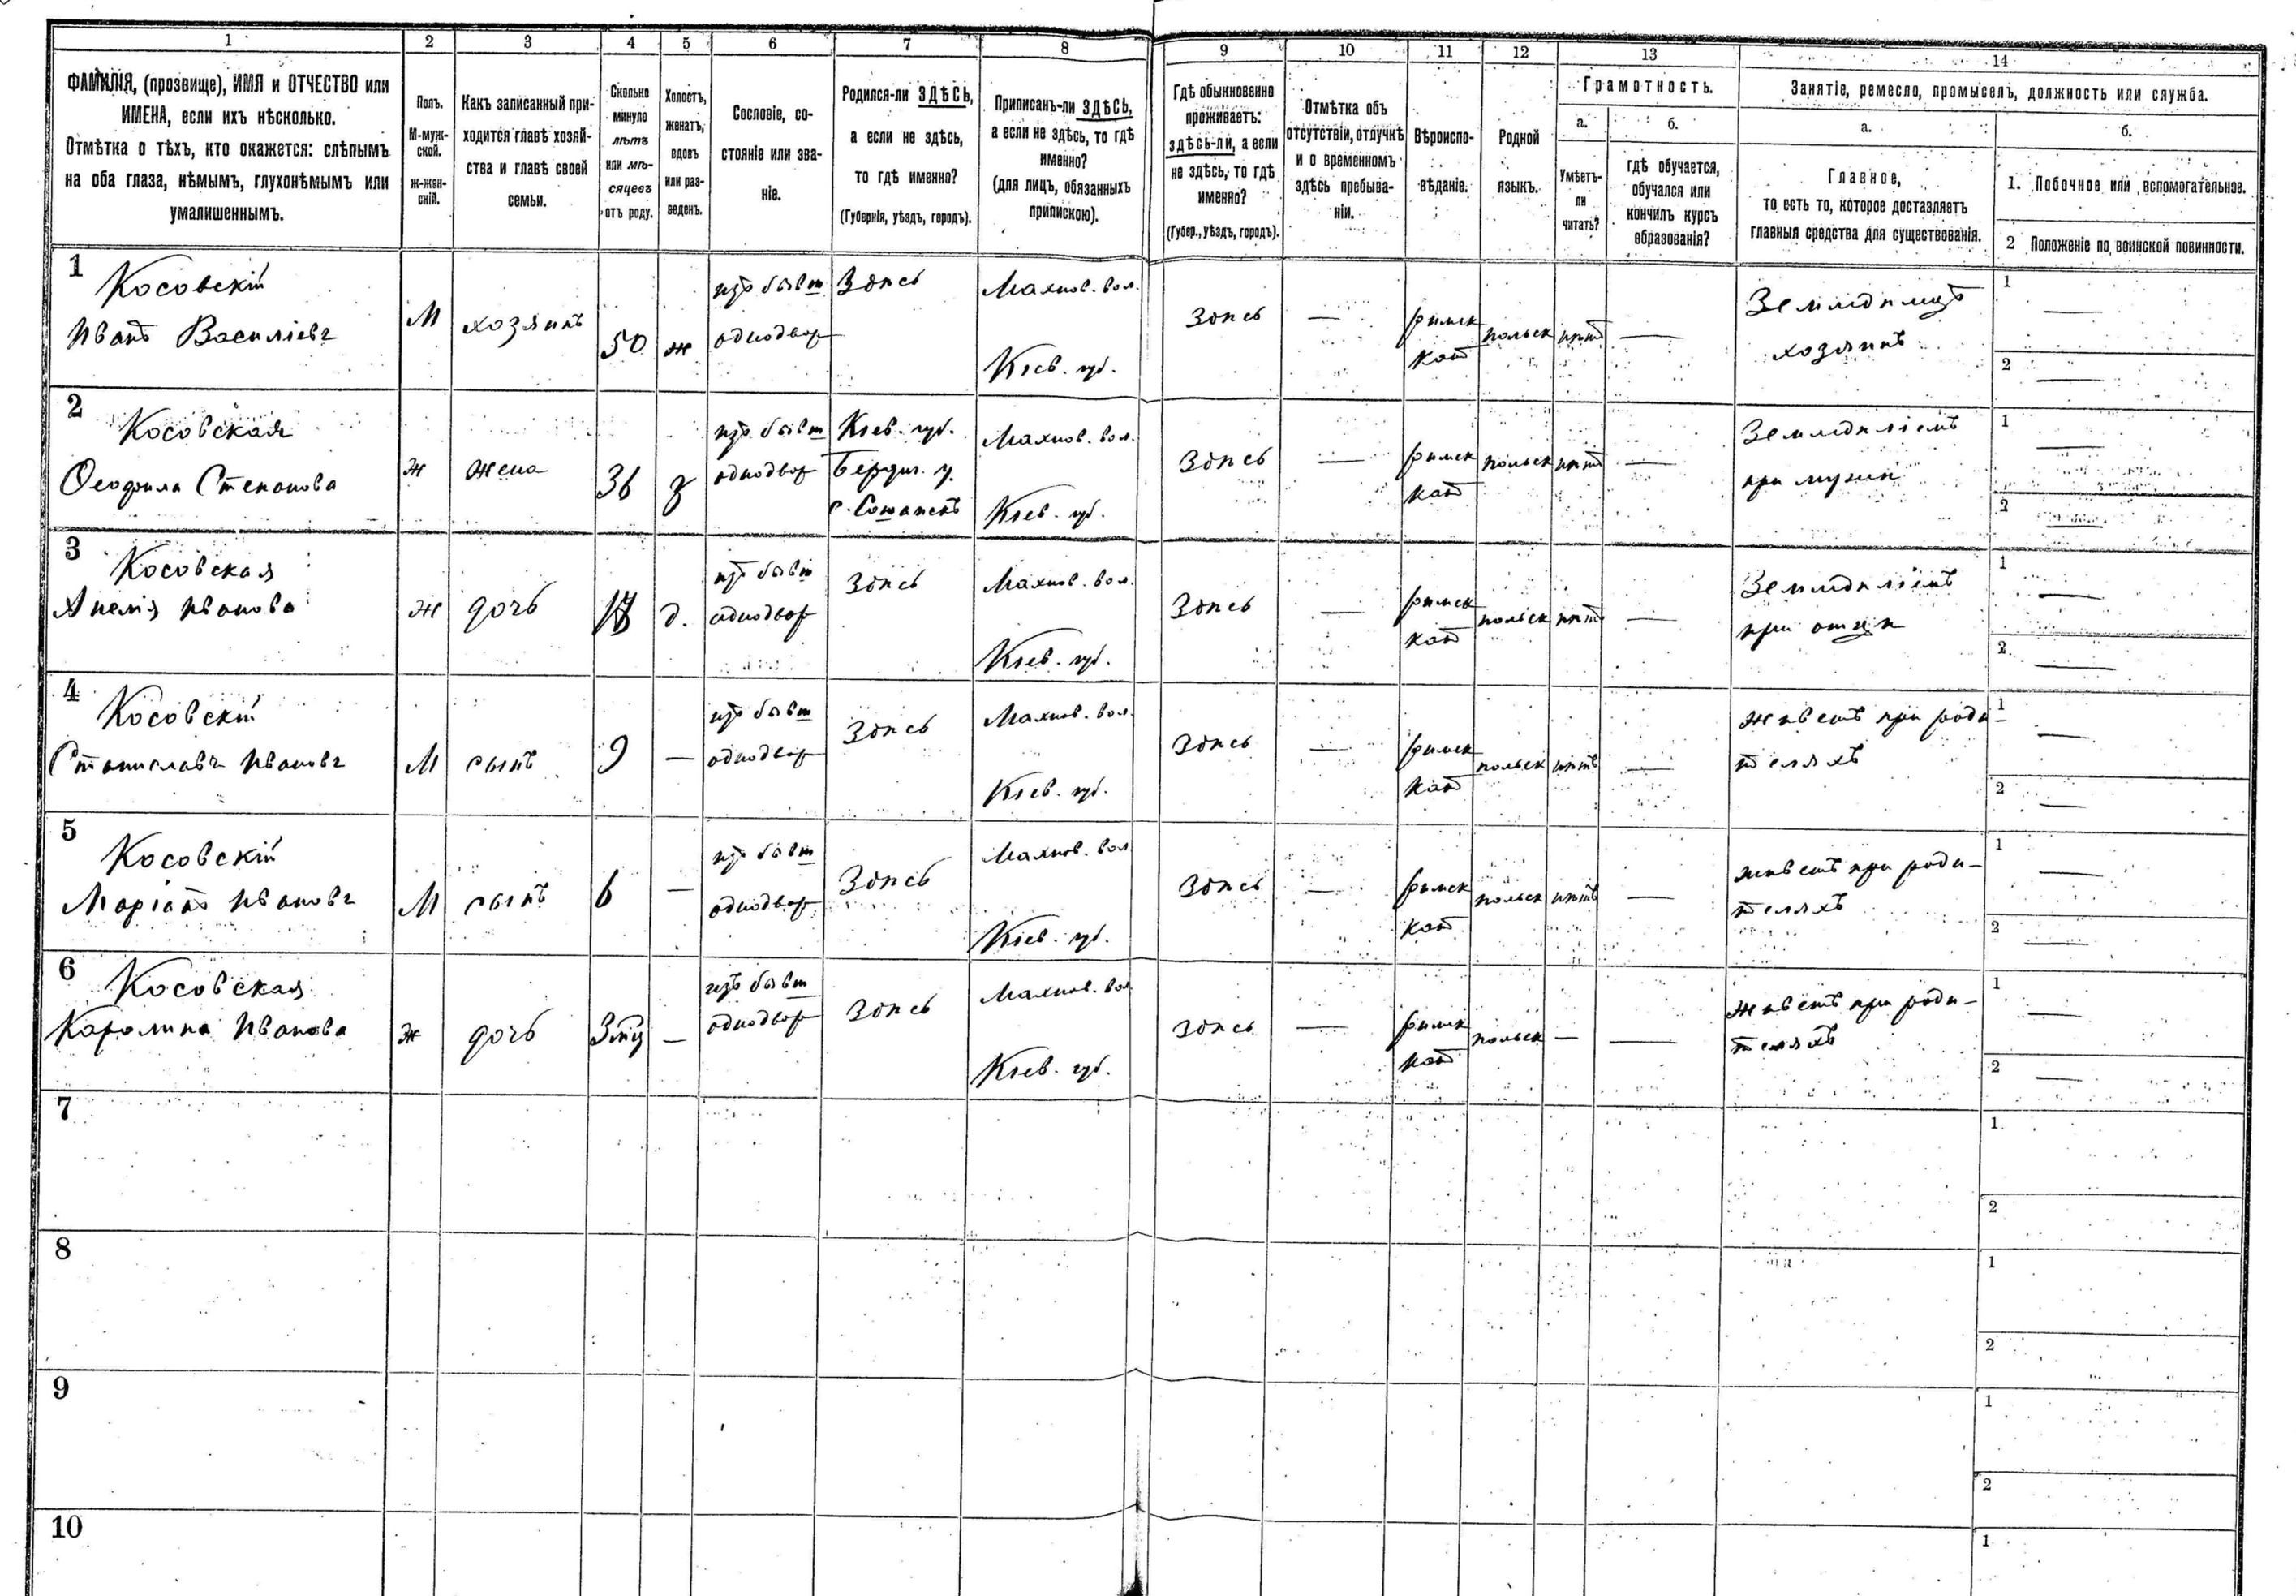 1 2 3 4 5 6 7 8 9 10 11 12 13 14
ФАМИЛІЯ, (прозвище), ИМЯ и ОТЧЕСТВО или
ИМЕНА, если ихъ нѣсколько.
Отмѣтка о тѣхъ, кто окажется: слѣпымъ
на оба глаза, нѣмымъ, глухонѣмымъ или
умалишеннымъ.
Полъ.
М-муж-
ской.
ж-жен-
скій.
Какъ записанный при-
ходится главѣ хозяй-
ства и главѣ своей
семьи.
Сколько
минуло
лѣтъ
или мѣ-
сяцевъ
отъ роду.
Холостъ,
женатъ,
вдовъ
или раз-
веденъ.
Сословіе, со-
стояніе или зва-
ніе.
Родился-ли ЗДѢСЬ,
а если не здѣсь,
то гдѣ именно?
(Губернія, уѣздъ, городъ).
Приписанъ-ли ЗДѢСЬ,
а если не здѣсь, то гдѣ
именно?
(для лицъ, обязанныхъ
припискою).
Гдѣ обыкновенно
проживаетъ:
здѣсь-ли, а если
не здѣсь, то гдѣ
именно?
(Губер., уѣздъ, городъ).
Отмѣтка объ
отсутствіи, отлучкѣ
и о временномъ
здѣсь пребыва-
ніи.
Вѣроиспо-
вѣданіе.
Родной
языкъ.
Грамотность.
а.
Умѣетъ-
ли
читать?
б.
гдѣ обучается,
обучался или
кончилъ курсъ
образованія?
Занятіе, ремесло, промыселъ, должность или служба.
а.
Главное,
то есть то, которое доставляетъ
главныя средства для существованія.
б.
1. Побочное или вспомогательное.
2 Положеніе по воинской повинности.
1
Косовскій
Иванъ Василіевъ
М
хозяинъ
50
ж
изъ бывш
однодвор
Здѣсь
Махнов. вол.
Кіев. губ.
Здѣсь
—
римск
кат
польск
нѣтъ
—
Земледѣлецъ
хозяинъ
1 —
2 —
2
Косовская
Феофила Степанова
ж
жена
36
з
изъ бывш
однодвор
Кіев. губ.
Бердич. у.
Махнов. вол.
Кіев. губ.
Здѣсь
—
римск
кат
польск
нѣтъ
—
Земледѣліемъ
при мужѣ
1 —
2 —
3
Косовская
Анеля Иванова
ж
дочь
д.
изъ бывш
однодвор
Здѣсь
Махнов. вол.
Кіев. губ.
Здѣсь
—
римск
кат
польск
нѣтъ
—
Земледѣліемъ
при отцѣ
1 —
2 —
4
Косовскій
Станиславъ Ивановъ
М
сынъ
9
—
изъ бывш
однодвор
Здѣсь
Махнов. вол.
Кіев. губ.
Здѣсь
—
римск
кат
польск
нѣтъ
—
живетъ при роди
теляхъ
1 —
2 —
5
Косовскій
Маріанъ Ивановъ
М
сынъ
6
—
изъ бывш
однодвор
Здѣсь
Махнов. вол
Кіев. губ.
Здѣсь
—
римск
кат
польск
нѣтъ
—
живетъ при роди-
теляхъ
1 —
2 —
6
Косовская
Каролина Иванова
ж
дочь
—
изъ бывш
однодвор
Здѣсь
Махнов. вол
Кіев. губ.
Здѣсь
—
римск
кат
польск
—
—
живетъ при роди-
теляхъ
1 —
2 —
7
1
2
8
1
2
9
1
2
10
1